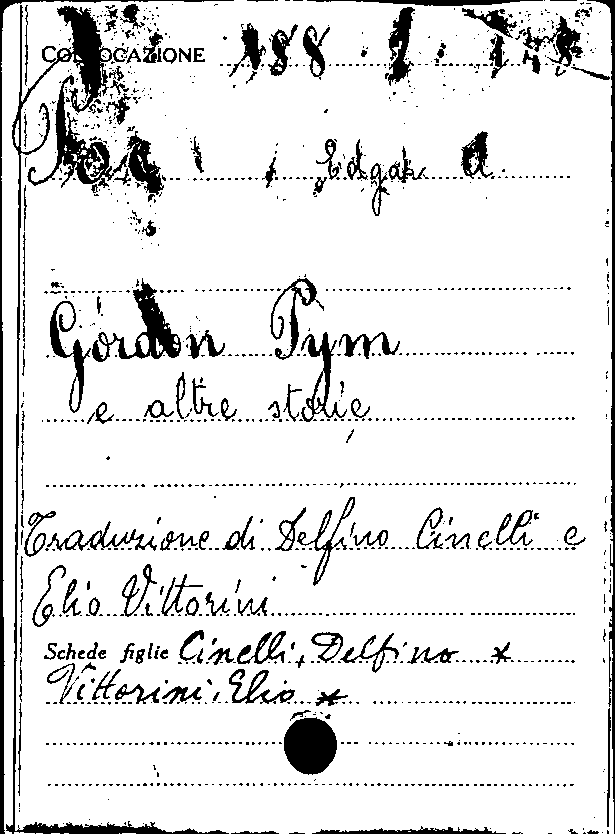 COLLOCAZIONE 188
Poe, Edgar A.
Gordon Pym
e altre storie
Traduzione di Delfino Cinelli e
Elio Vittorini
Schede figlie Cinelli, Delfino *
Vittorini, Elio *